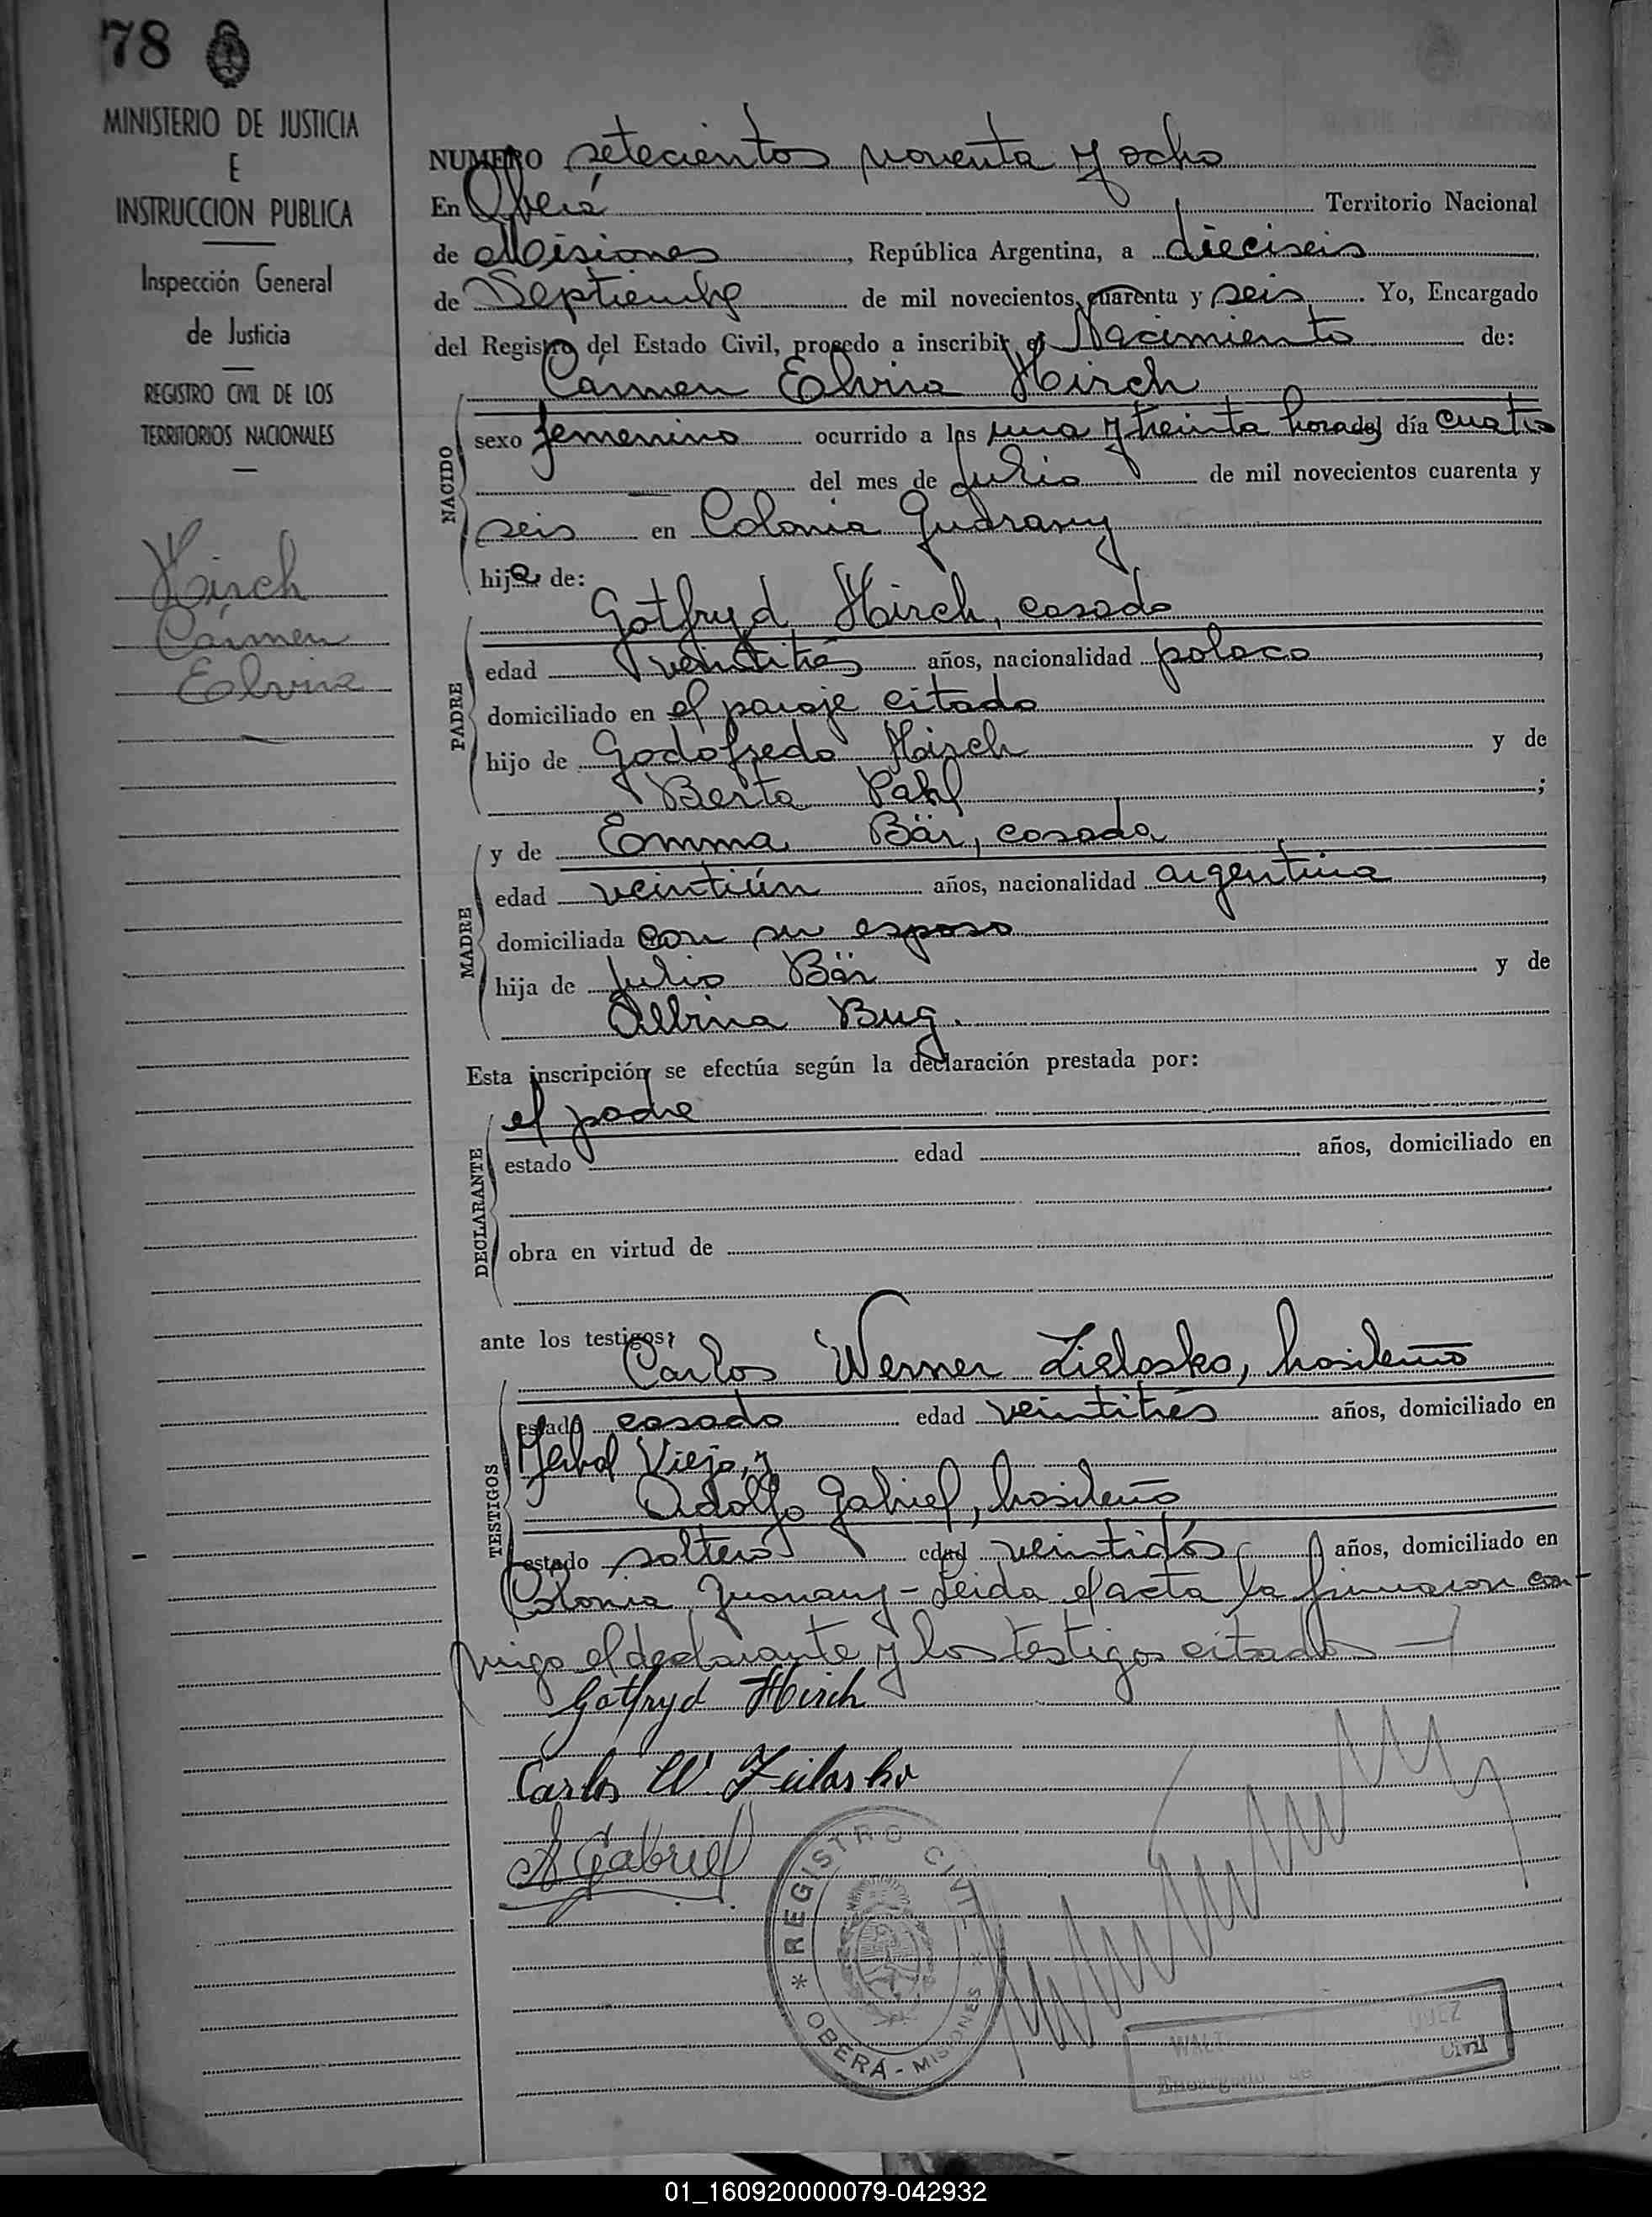 78
MINISTERIO DE JUSTICIA
E
INSTRUCCION PUBLICA
Inspección General
de Justicia
REGISTRO CIVIL DE LOS
TERRITORIOS NACIONALES
Hirch
Cármen
Elvira
NUMERO setecientos noventa y ocho
En Oberá Territorio Nacional
de Misiones, República Argentina, a dieciseis
de Septiembre de mil novecientos cuarenta y seis. Yo, Encargado
del Registro del Estado Civil, procedo a inscribir el Nacimiento de:
Cármen Elvira Hirch
NACIDO
sexo femenino ocurrido a las una y treinta horas del día cuatro
del mes de Julio de mil novecientos cuarenta y
seis en Colonia Guarany
hija de:
Gotfryd Hirch, casado
PADRE
edad veintitrés años, nacionalidad polaco,
domiciliado en el paraje citado
hijo de Godofredo Hirch y de
Berta Pahl;
y de Emma Bär, casada
MADRE
edad veintiún años, nacionalidad argentina,
domiciliada con su esposo
hija de Julio Bär y de
Albina Bug.
Esta inscripción se efectúa según la declaración prestada por:
el padre
DECLARANTE
estado edad años, domiciliado en
obra en virtud de
ante los testigos:
Carlos Werner Zielasko, brasileño
TESTIGOS
estado casado edad veintitrés años, domiciliado en
Yerbal Viejo, y
Adolfo Gabriel, brasileño
estado soltero edad veintidós años, domiciliado en
Colonia Guarany - Leida el acta la firmaron con-
migo el declarante y los testigos citados —
Gotfryd Hirch
Carlos W Zielasko
A Gabriel
* REGISTRO CIVIL *
OBERÁ - MISIONES
Civil
01_160920000079-042932